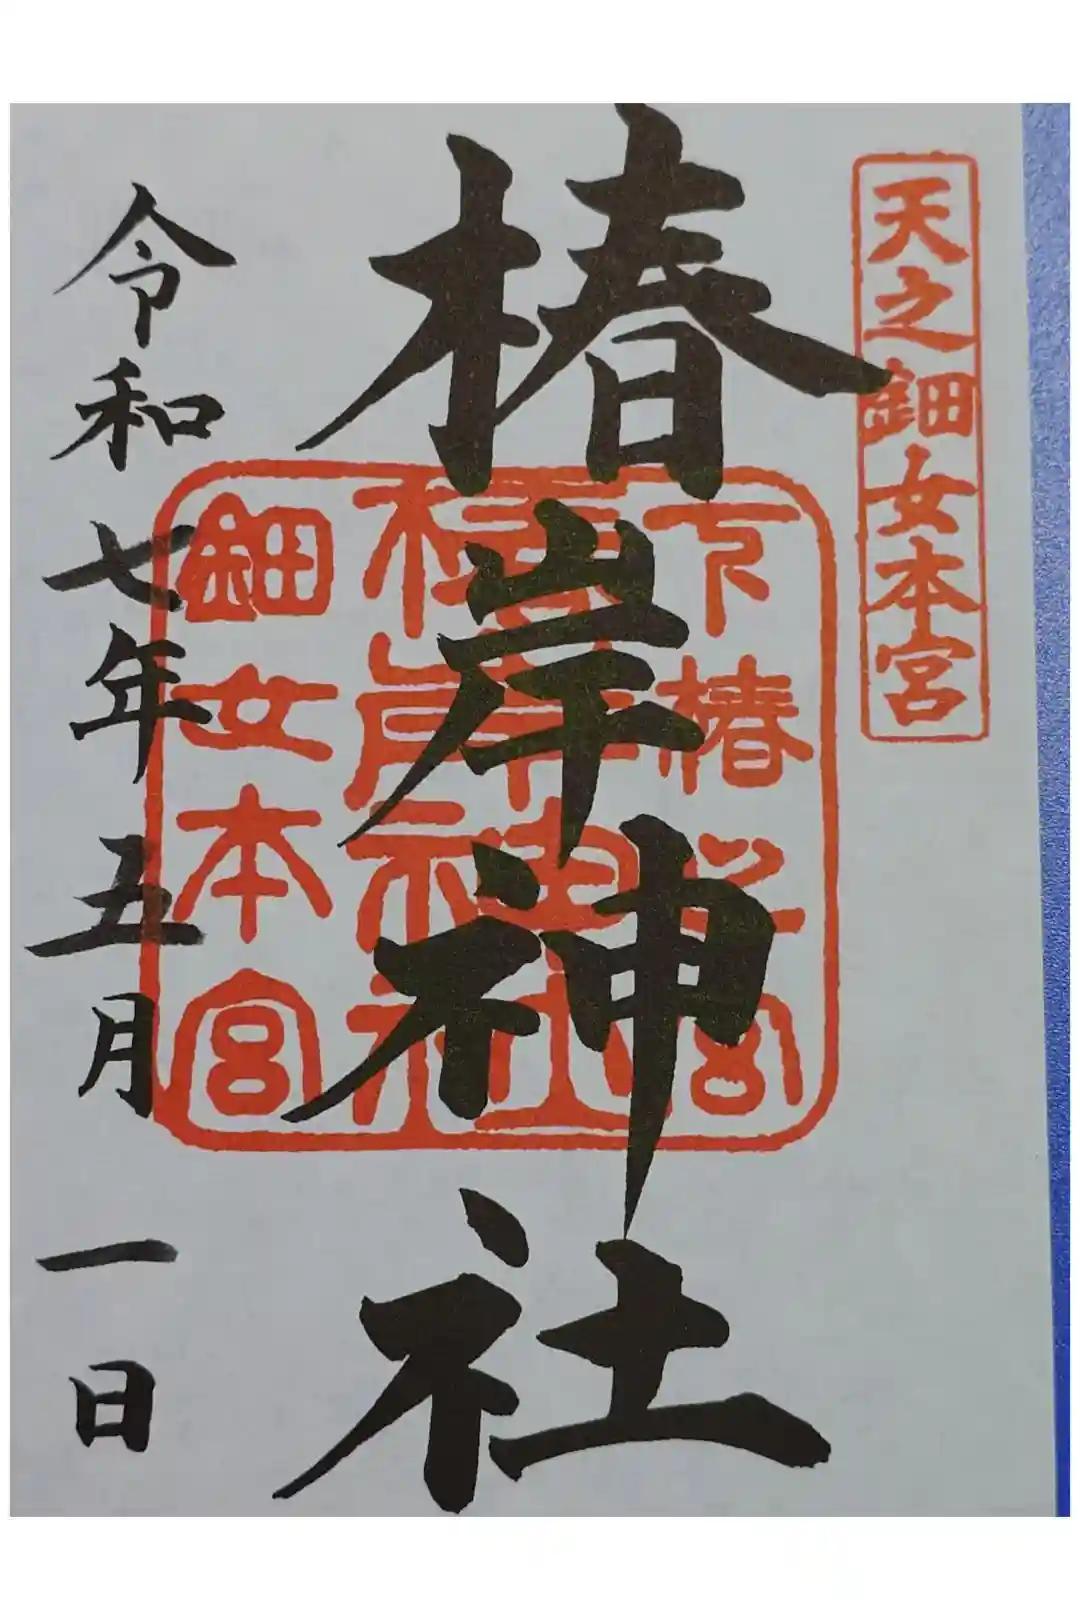 天之鈿女本宮
椿岸神社
下椿
椿岸神社
鈿女本宮
令和七年五月一日